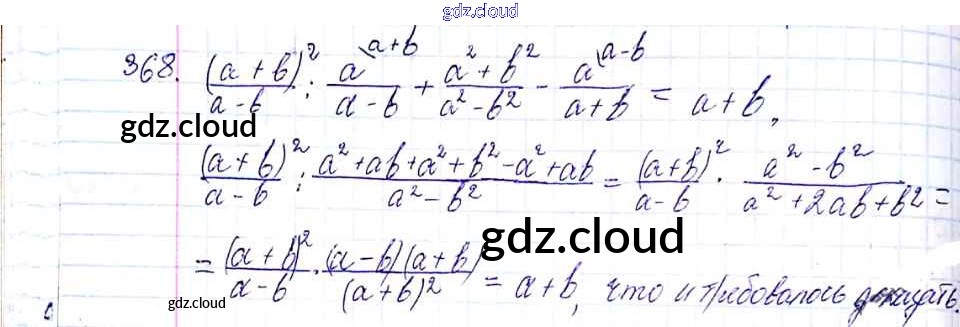 gdz.cloud
368. (a + b)²/(a - b) : a\a+b/(a - b) + (a² + b²)/(a² - b²) - a\a-b/(a + b) = a + b,
gdz.cloud
(a + b)²/(a - b) : (a² + ab + a² + b² - a² + ab)/(a² - b²) = (a + b)²/(a - b) · (a² - b²)/(a² + 2ab + b²) =
gdz.cloud
= (a + b)²/(a - b) · (a - b)(a + b)/(a + b)² = a + b, что и требовалось доказать.
gdz.cloud